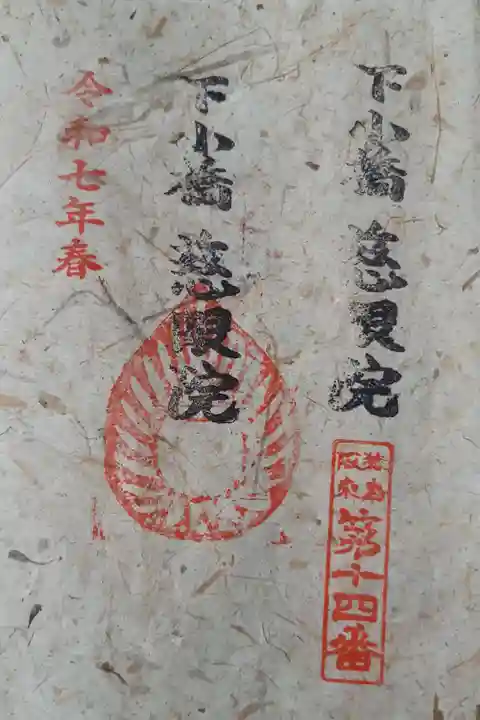 下小橋 慈眼院
猿島
阪東
第十四番
下小橋 慈眼院
令和七年春